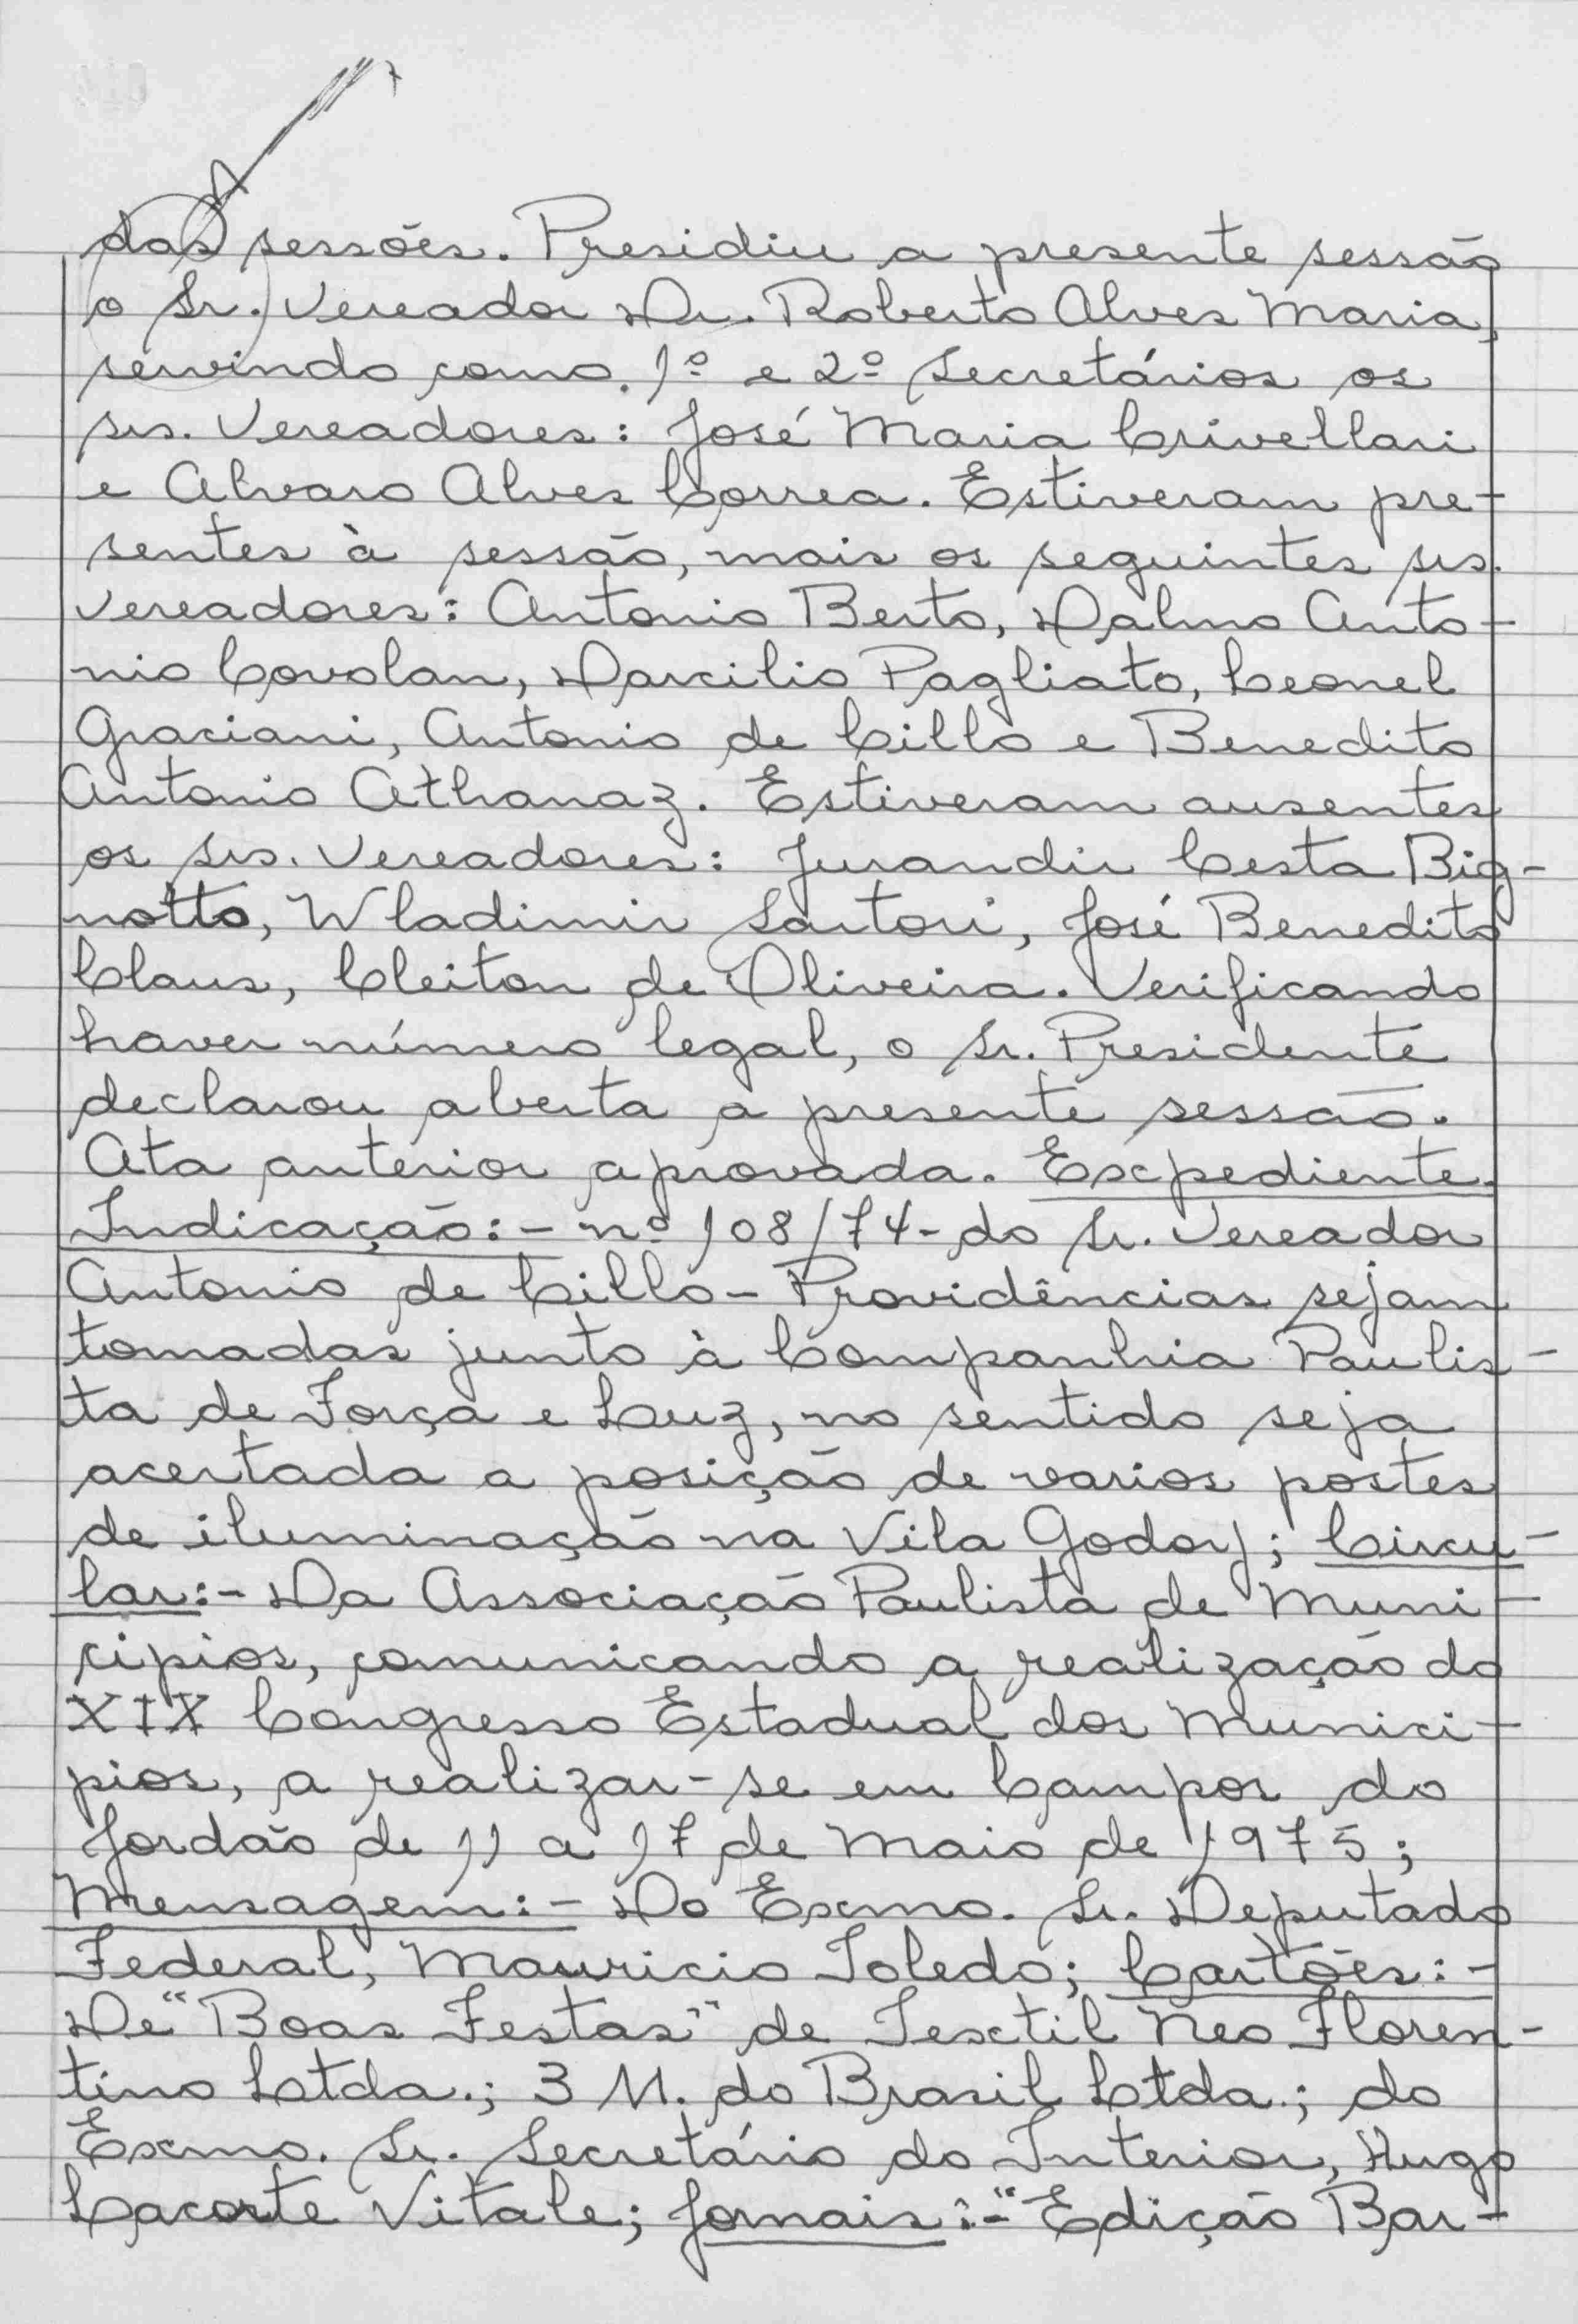 das sessões. Presidiu a presente sessão
o Sr. Vereador Dr. Roberto Alves Maria,
servindo como 1º e 2º Secretários os
srs. Vereadores: José Maria Crivellari
e Alvaro Alves Correa. Estiveram pre-
sentes à sessão, mais os seguintes srs.
Vereadores: Antonio Berto, Dalmo Anto-
nio Covolan, Darcilio Pagliato, Leonel
Graciani, Antonio de Cillo e Benedito
Antonio Athanaz. Estiveram ausentes
os srs. Vereadores: Jurandir Cesta Big-
notto, Wladimir Sartori, José Benedito
Claus, Cleiton de Oliveira. Verificando
haver número legal, o Sr. Presidente
declarou aberta a presente sessão.
Ata anterior aprovada. Expediente.
Indicação:- nº 108/74- do Sr. Vereador
Antonio de Cillo- Providências sejam
tomadas junto à Companhia Paulis-
ta de Força e Luz, no sentido seja
acertada a posição de varios postes
de iluminação na Vila Godoy; Circu-
lar:- Da Associação Paulista de Muni-
cipios, comunicando a realização do
XIX Congresso Estadual dos Munici-
pios, a realizar-se em Campos do
Jordão de 11 a 17 de Maio de 1975;
Mensagem:- Do Exmo. Sr. Deputado
Federal, Mauricio Toledo; Cartões:-
De "Boas Festas" de Textil Neo Floren-
tino Ltda.; 3 M. do Brasil Ltda.; do
Exmo. Sr. Secretário do Interior, Hugo
Lacorte Vitale; Jornais:- "Edição Bar-